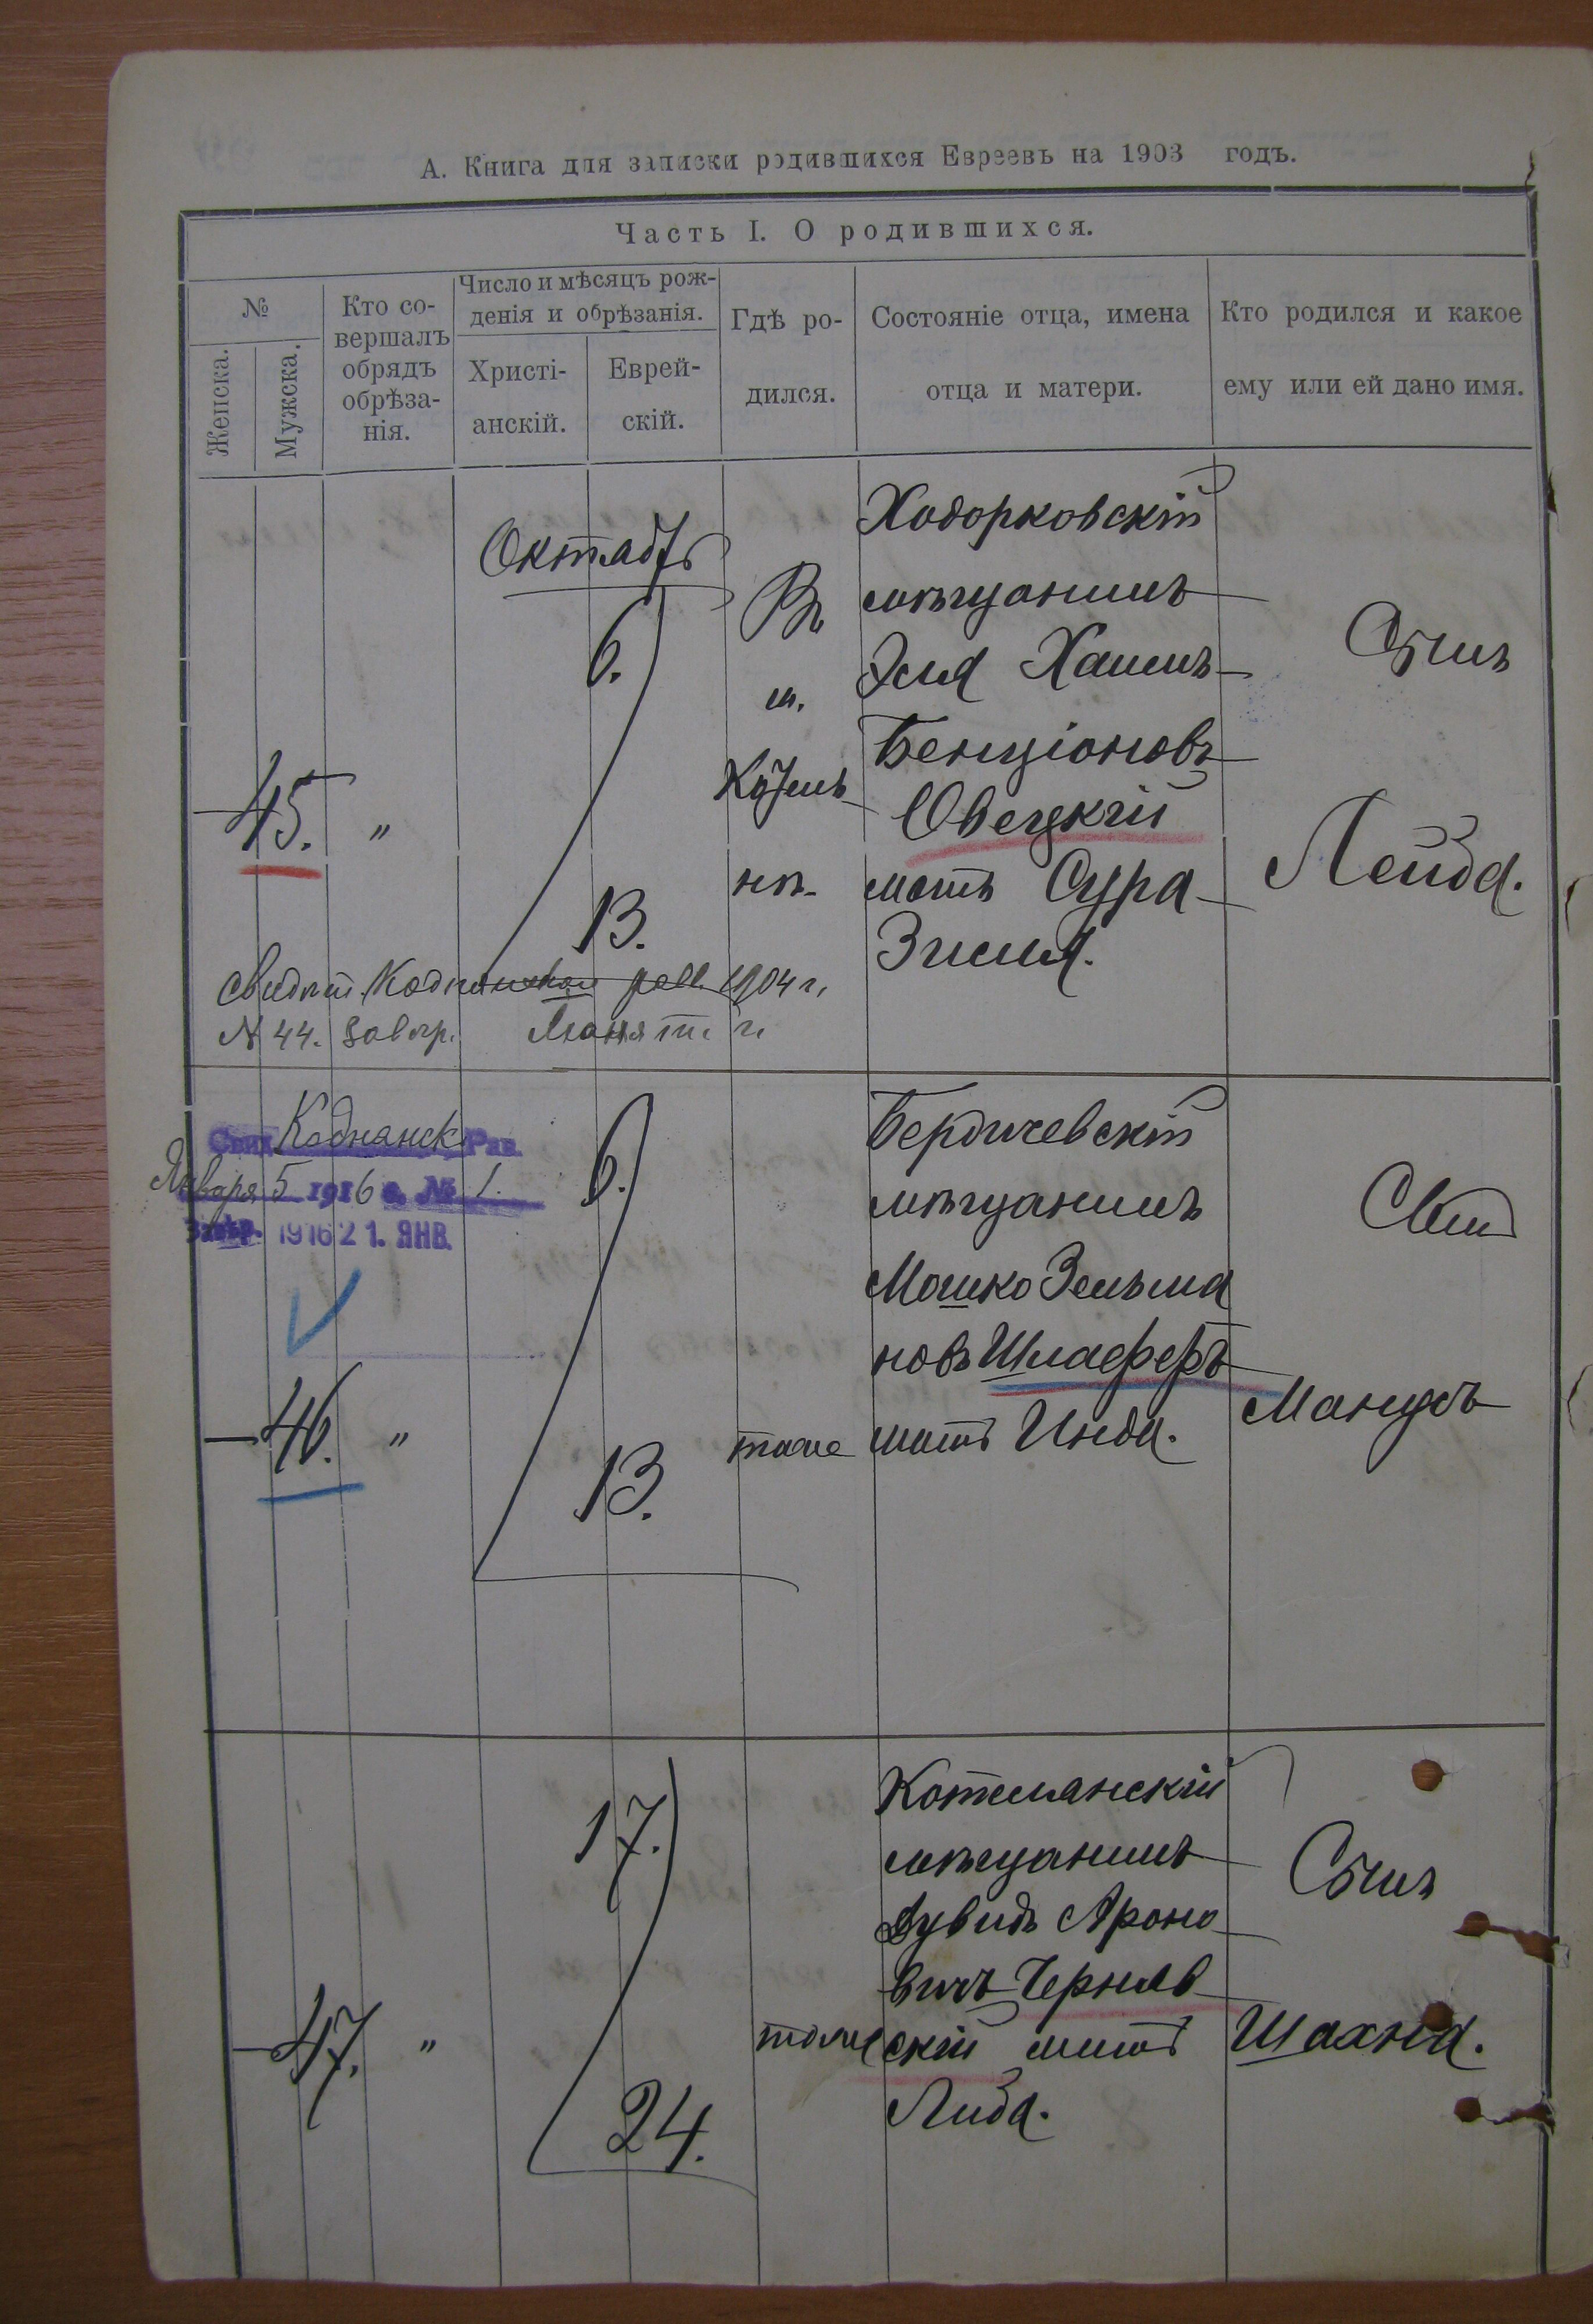 А. Книга для записки родившихся Евреевъ на 1903 годъ.
Часть I. О родившихся.
№
Женска.
Мужска.
Кто со-
вершалъ
обрядъ
обрѣза-
нія.
Число и мѣсяцъ рож-
денія и обрѣзанія.
Христі-
анскій.
Еврей-
скій.
Гдѣ ро-
дился.
Состояніе отца, имена
отца и матери.
Кто родился и какое
ему или ей дано имя.
45.
"
Октябрь
6.
13.
Въ
м.
нѣ
Ходорковскій
мѣщанинъ
Эля Хаимъ
Бенціоновъ
Овецкій
мать Сура
Зисля.
Сынъ
Лейба.
Коднянской 1904 г.
N 44.
Свид. Коднянск. Рав.
Января 5 1916 г. № 1.
Завѣр. 1916 21. ЯНВ.
46.
"
6.
13.
тоже
Бердичевскій
мѣщанинъ
Мошко Зельма
новъ Шлаферъ
мать Инда.
Сын
Манусъ
47.
"
17.
24.
тоже
Котелянскій
мѣщанинъ
Дувидъ Ароно
вичъ Черняв
скій мать
Либа.
Сынъ
Шахна.